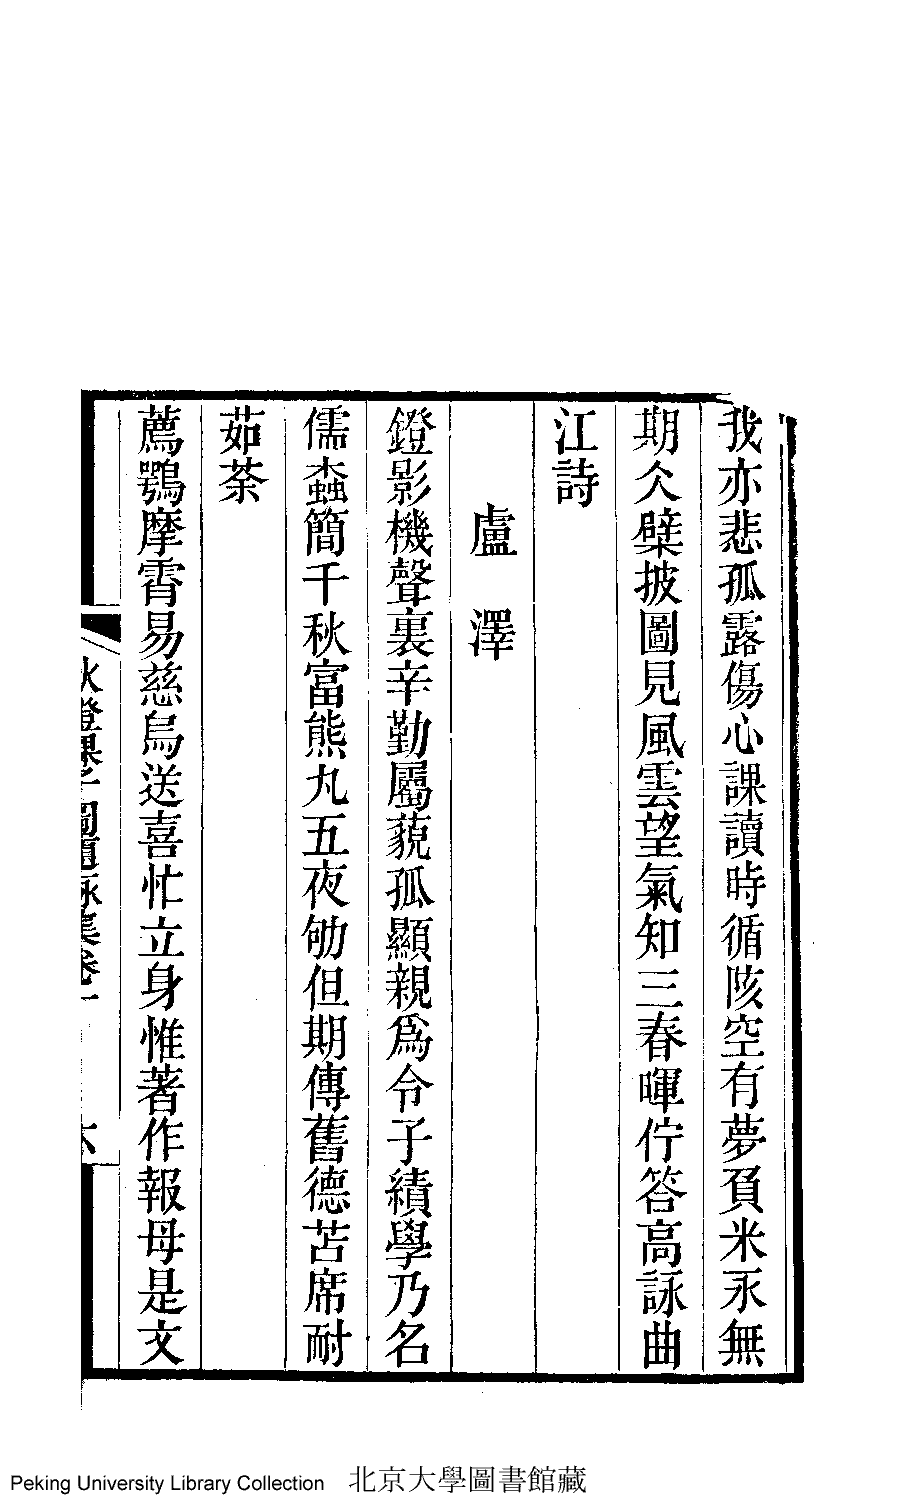 我亦悲孤露傷心課讀時循陔空有夢負米永無
期久襞披圖見風雲望氣知三春暉佇答高詠曲
江詩
盧澤
鐙影機聲裏辛勤屬藐孤顯親爲令子績學乃名
儒蠹簡千秋富熊丸五夜劬但期傳舊德苦席耐
茹荼
薦鶚摩霄易慈烏送喜忙立身惟著作報母是文
秋鐙課子圖題詠集卷一
六
Peking University Library Collection 北京大學圖書館藏